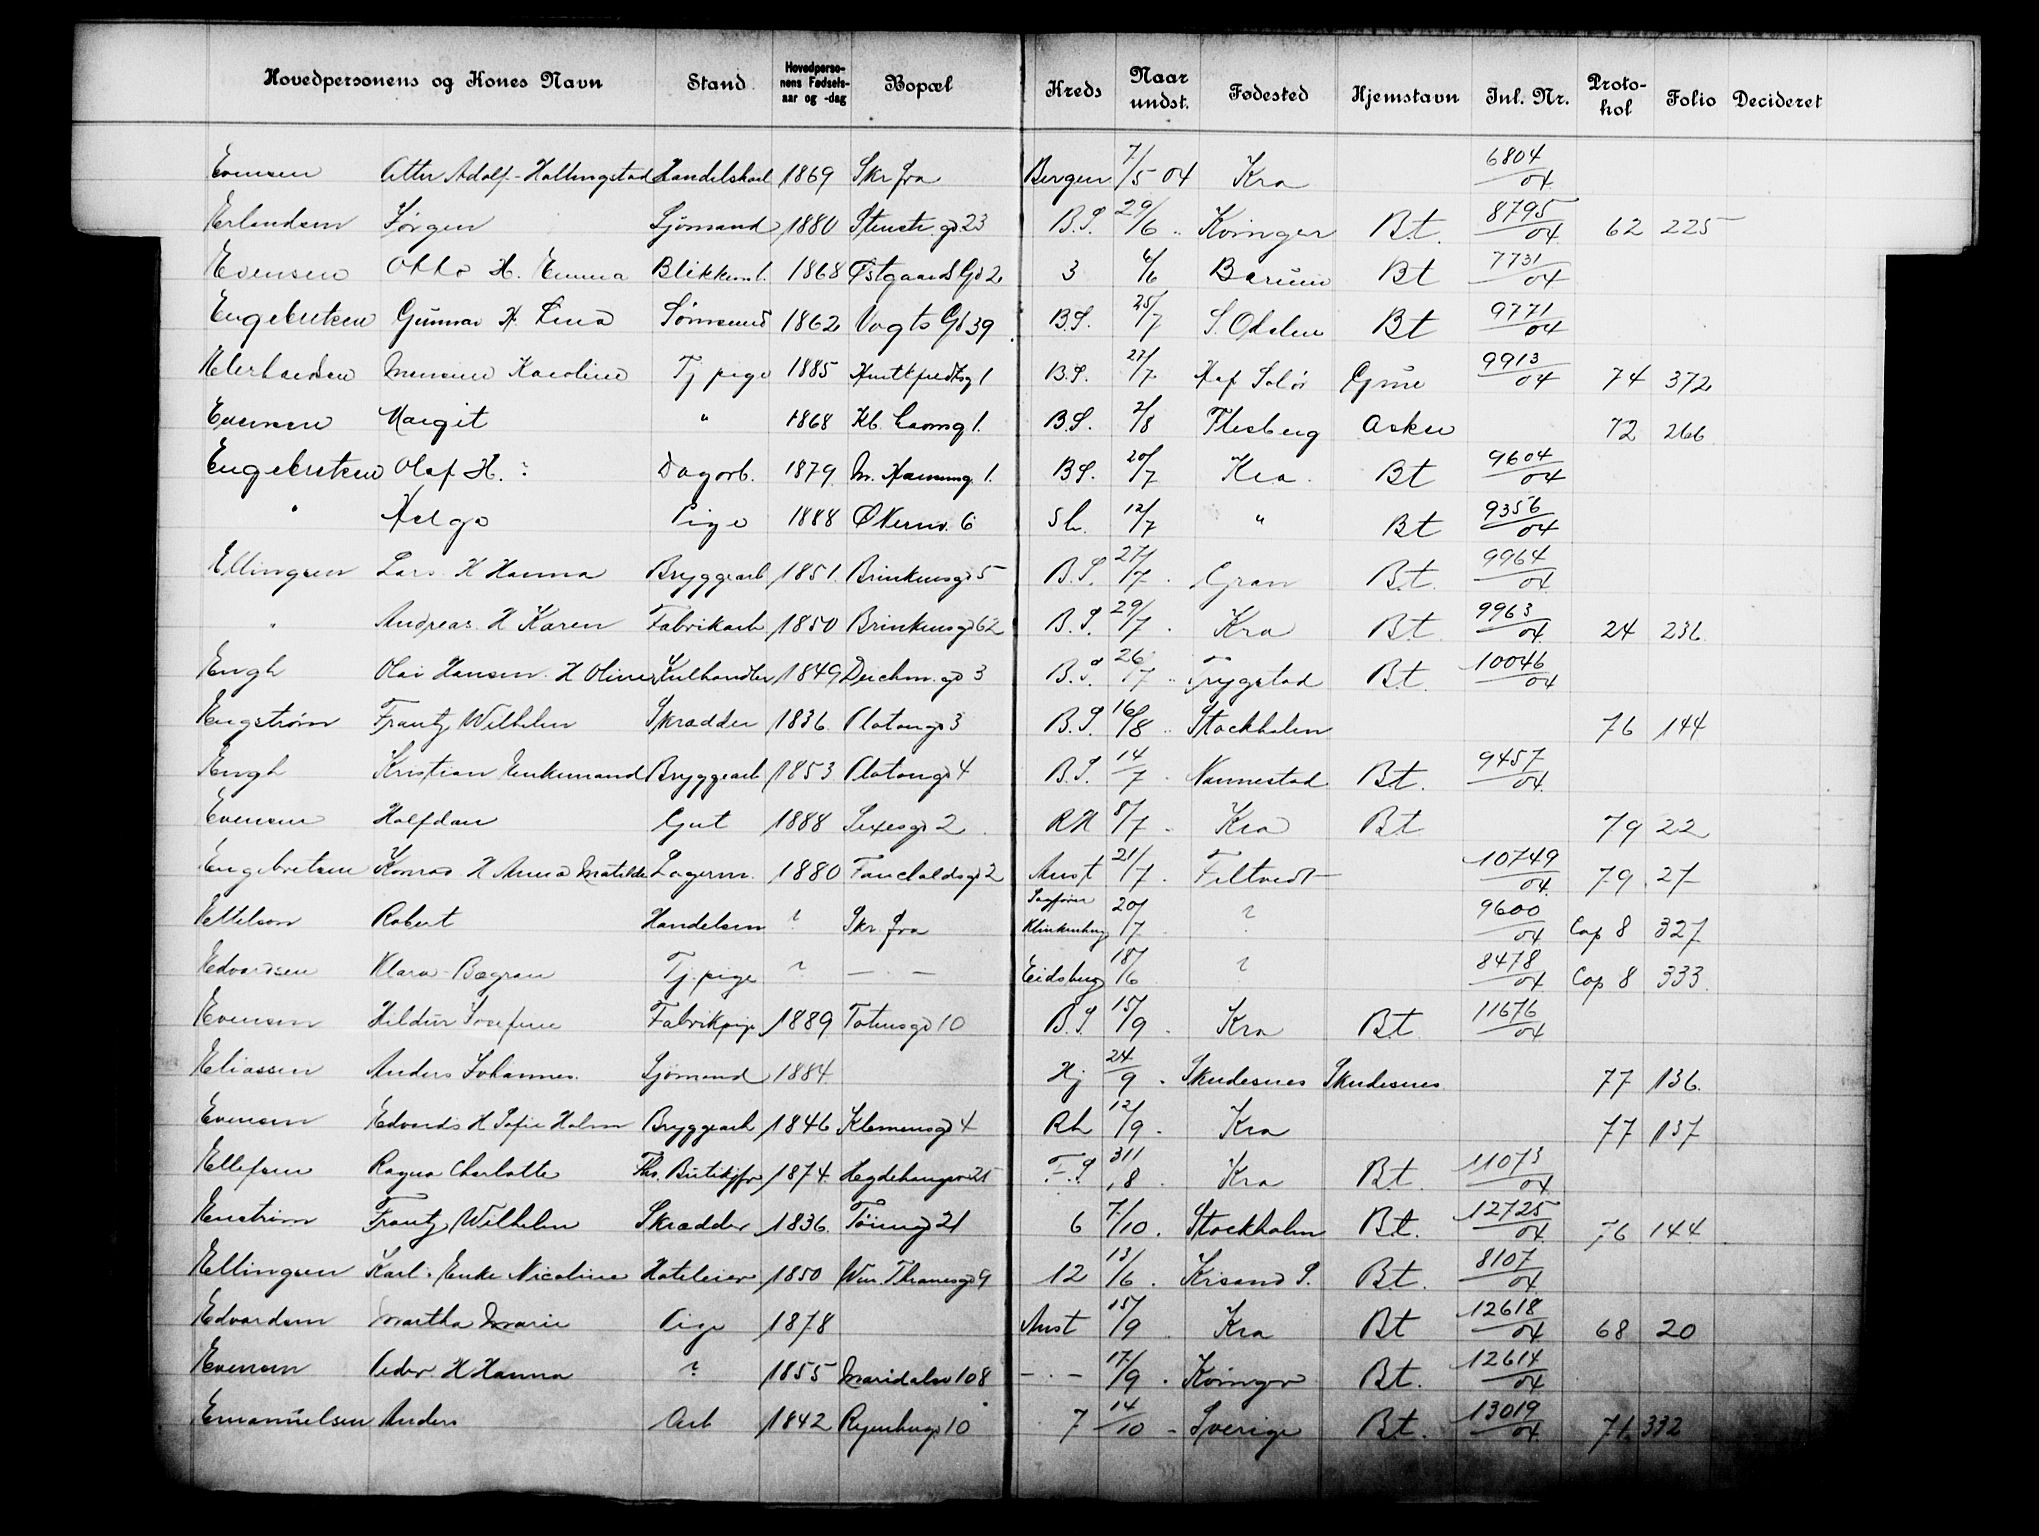 Hovedpersonens og Kones Navn Stand Hovedpersonens Fødselsaar og -dag Bopæl Kreds Naar undst. Fødested Hjemstavn Inl. Nr. Protokol Folio Decideret
Evensen Otter Adolf - Hallingstad Handelskarl 1869 Skr. fra Bergen 7/5 04 Kra 6804/04
Erlandsen Jørgen Sjömand 1880 Stenstr. gd 23 B.S. 29/6 " Kvinger Bt. 8795/04 62 225
Evensen Otto H. Emma Blikkensl. 1868 Østgaards Gd 2 3 6/6 Bærum Bt 7731/04
Engebretsen Gunnar H. Lina 1862 Vogts Gd 39 B.S. 25/7 S. Odalen Bt 9771/04
Karoline Tj pige 1885 B.S. 27/7 Hof Solør 9913/04 74 372
Evensen Margit " 1868 B.S. 2/8 Flesberg Asker 72 266
Engebretsen Olaf H. : Dagarb. 1879 1. B.S. 20/7 Kra. Bt 9604/04
" Helga Pige 1888 Økernv. 6 Sh. 12/7 " Bt 9356/04
Ellingsen Lars H Hanna Bryggearb 1851. Brinkensgd 5 B.S. 27/7 . Gran Bt. 9964/04
" Andreas. H Karen Fabrikarb 1850 Brinkensgd 62 B.S. 29/7 . Kra Bt 9963/04 24 236
Engh Olai Hansen. H Oline Kulhandler 1849 Deichm. gd 3 B.S. 26/7 " Trygstad Bt. 10046/04
Engstrøm Frantz Wilhelm Skrædder 1836. Platousgd 3 B.S. 16/8 " Stockholm 76 144
Engh Kristian Enkemand Bryggearb 1853 Platousgd 4 B.S. 14/7 . Nannestad Bt. 9457/04
Evensen Halfdan Gut 1888 Sexesgd 2 RH 8/7 . Kra Bt 79 22
Engebretsen Konrad H Anna Matilde Lagerm. 1880 Fauchaldsgd 2 Anst 21/7 . Filtvedt 10749/04 79 27
Robert Handelsm ? Skr. fra Sagfører Klinkenberg 20/7 ? 9600/04 Cop 8 327
Edvardsen Klara - Bøgran Tj. pige ? — . — Eidsberg 18/6 ? 8478/04 Cop 8 333
Evensen Hildur Josefine Fabrikpige 1889 Totensgd 10 B.S. 15/9 . Kra Bt. 11676/04
Eliassen Anders Johannes. Sjömand 1884. Hj 24/9 . Skudesnes Skudesnes 77 136.
Evensen Edvards H Sofie Holm Bryggearb 1846 Klemensgd 4 Rh 12/9 . Kra 77 137
Ellefsen Ragna Charlotte Fhv. 1874. Hegdehaugsv 25 F.S. 311/8 Kra Bt. 11073/04
Enström Frantz Wilhelm Skrædder 1836. Töiengd 21 6 7/10 . Stockholm Bt. 12725/04 76 144
Ellingsen Karl. Enke Nicoline Hoteleier 1850 Wm. Thranesgd 9 12 13/6 . Krisand S. Bt. 8107/04
Edvardsen Martha Marie Pige 1878 Anst 15/9 . Kra Bt 12618/04 68 20
Evensen Peder H Hanna ? 1855 Maridalsv 108 — . — 17/9 . Kvinger Bt. 12614/04
Emanuelsen Anders Arb 1842 Ryenbergd 10 7 14/10 - Sverige Bt. 13019/04 71. 332